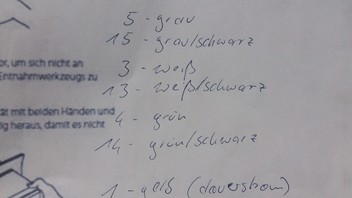 5 - grau
15 - grau/schwarz
or, um sich nicht an
Entnahmwerkzeugs zu
3 - weiß
13 - weiß/schwarz
tät mit beiden Händen und
ig heraus, damit es nicht
4 - grün
14 - grün/schwarz
1 - gelb (dauerstrom)